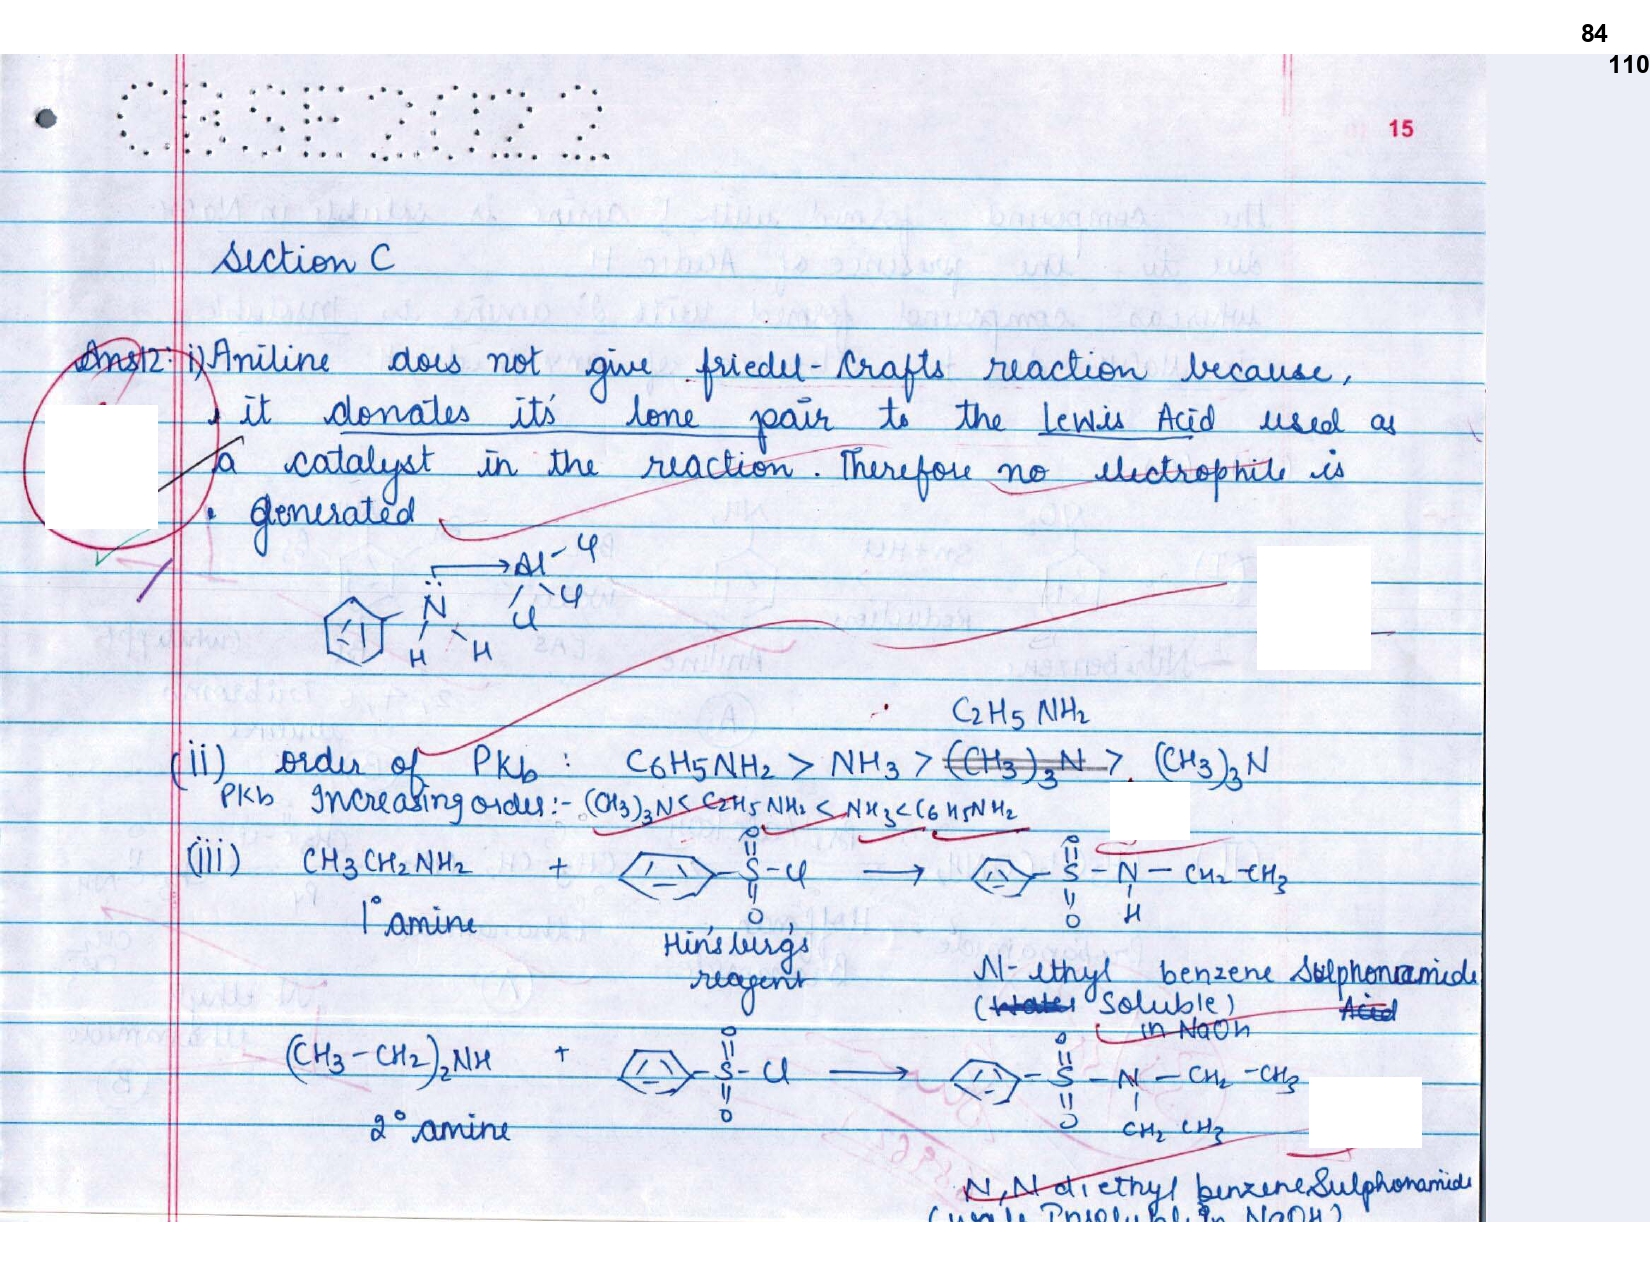 84
110
CBSE2022
15
Section C
Ans12. i) Aniline does not give friedel-Crafts reaction because,
it donates its' lone pair to the Lewis Acid used as
a catalyst in the reaction. Therefore no electrophile is
generated
Al-Cl
N Cl
Cl
H H
C2H5NH2
(ii) order of PKb : C6H5NH2 > NH3 > (CH3)3N > (CH3)3N
PKb Increasing order:- (CH3)3N< C2H5NH2 < NH3<C6H5NH2
O O
(iii) CH3CH2NH2 + S-Cl → S-N-CH2-CH3
O O H
1° amine
Hinsburg's
reagent
N-ethyl benzene Sulphonamide
(Water Soluble) Acid
in NaOH
O O
(CH3-CH2)2NH + S-Cl → S-N-CH2-CH3
O O CH2CH3
2° amine
N,N diethyl benzene Sulphonamide
Insoluble in NaOH)